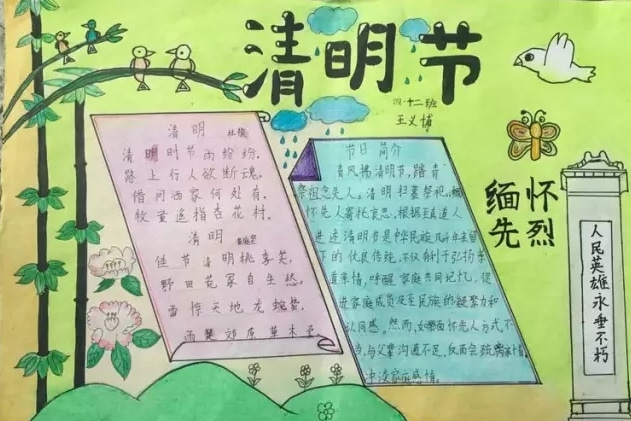 清明节
四·十二班
王义博
清明 杜牧
清明时节雨纷纷，
路上行人欲断魂。
借问酒家何处有，
牧童遥指杏花村。
清明
佳节清明桃李笑，
野田荒冢自生愁。
雷惊天地龙蛇蛰，
雨 郊原草木柔
节日简介
春风拂清明节，踏青
祭祖念是人。清明扫墓祭祀，缅
怀先人寄托哀思，根据
进送清明节是中华民族几千年来留
下的优良传统，不仅有利于弘扬孝
道亲情，唤醒家庭共同记忆，促
进家庭成员及至民族的凝聚力和
认同感。然而，如缅怀先人方式不
当，与父辈沟通不足，反而会
冲淡家庭感情。
缅怀
先烈
人民英雄永垂不朽